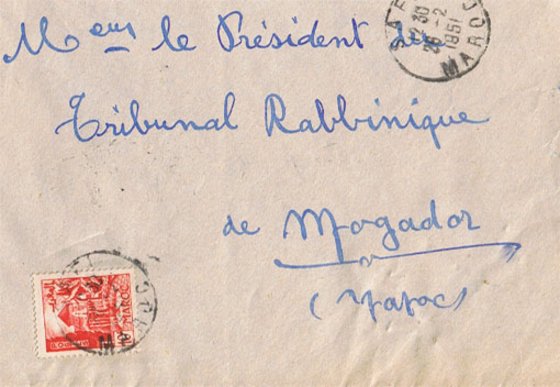 Meur le Président du
Tribunal Rabbinique
de Mogador
(Maroc)
SAF
12 30
26 -2
1951
MAROC
MAROC